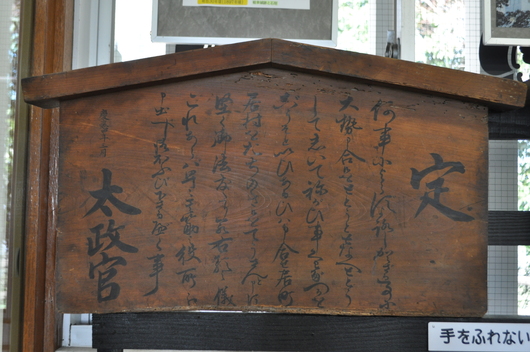 定
何事によらずよろしからざる事に
大勢申合せ候をととうととなへととう
してしいてねがひ事くわだつるを
ごうそといひあるひハ申合せ居町
居村をたちのき候をてうさんと申す
堅く御法度たり若右類の儀
これあらバ早々其筋の役所へ
申出べし御ほうび下さるべく事
太政官
手をふれない